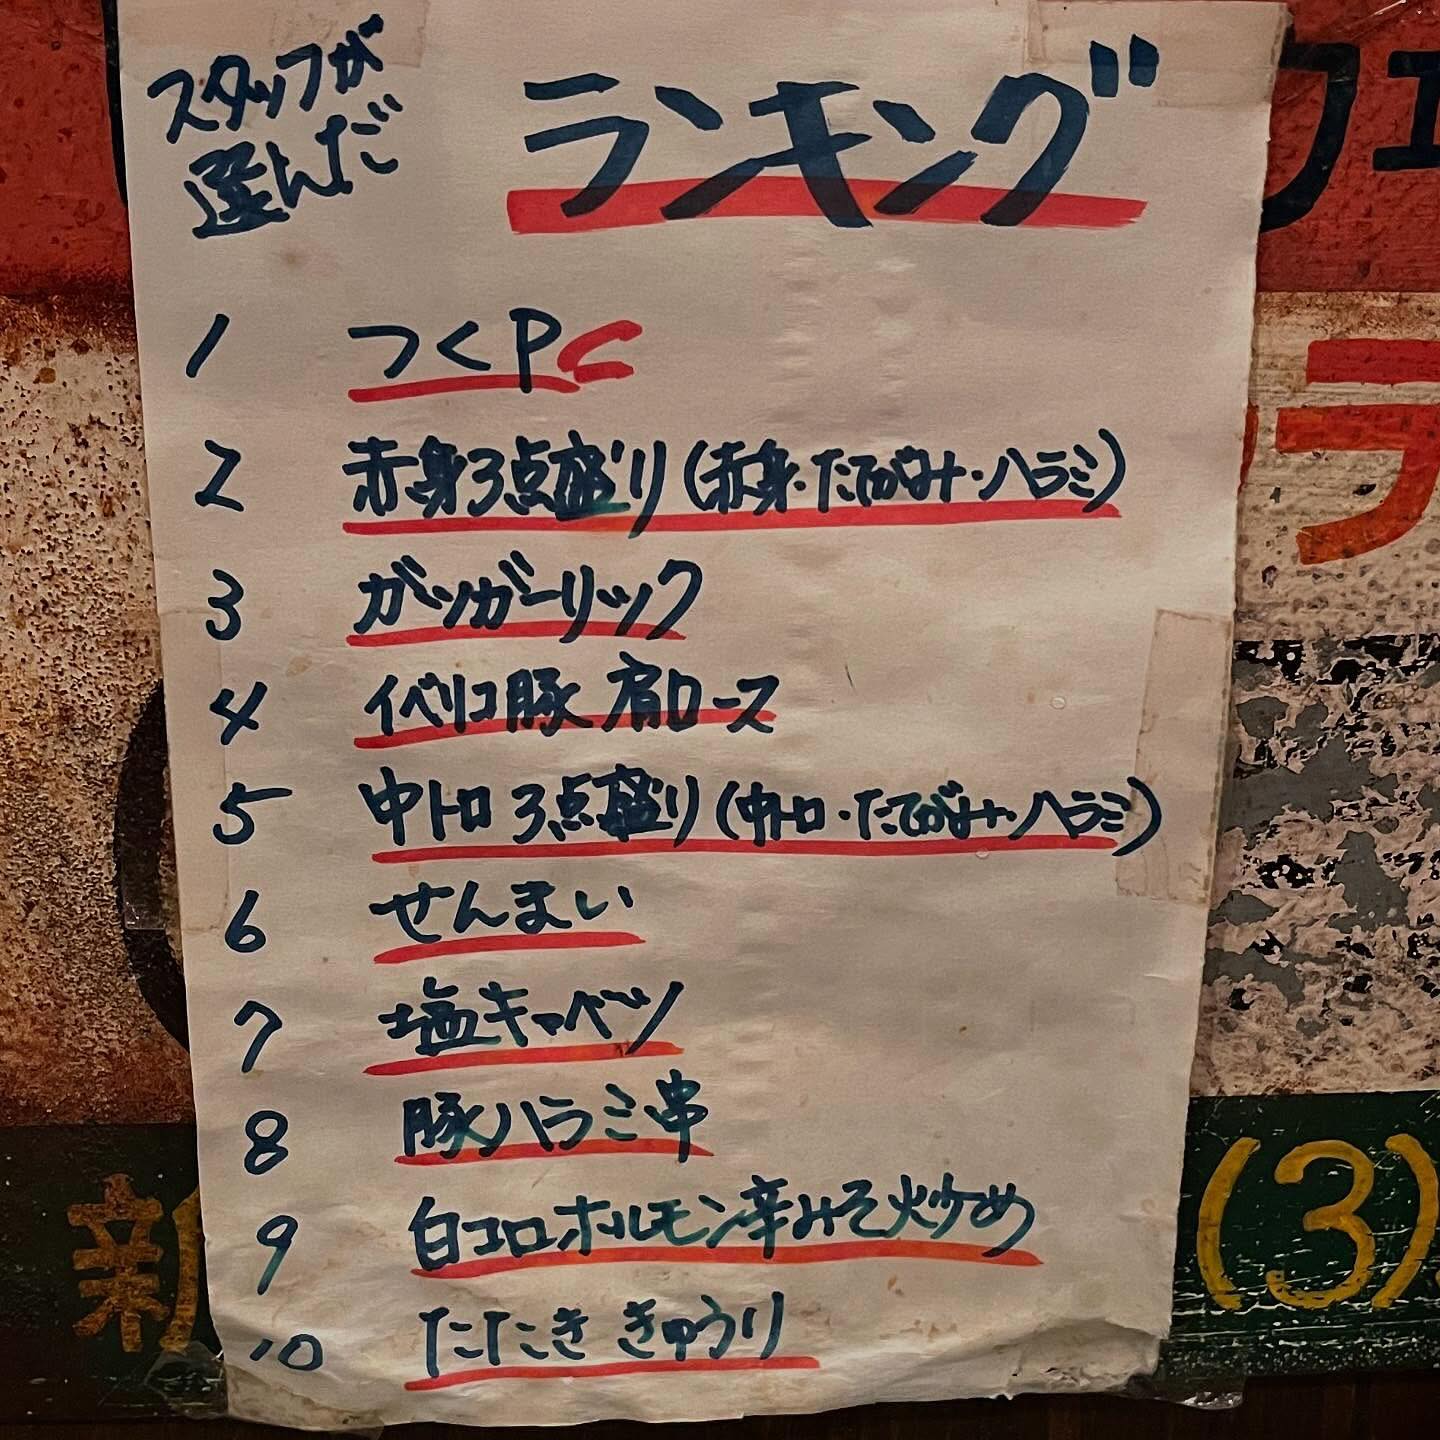 スタッフが
選んだ
ランキング
1 つくPC
2 赤身3点盛り(赤身・たてがみ・ハラミ)
3 ガツガーリック
4 イベリコ豚 肩ロース
5 中トロ 3点盛り(中トロ・たてがみ・ハラミ)
6 せんまい
7 塩キャベツ
8 豚ハラミ串
9 白コロホルモン辛みそ炒め
10 たたききゅうり
ラ
新
(3)